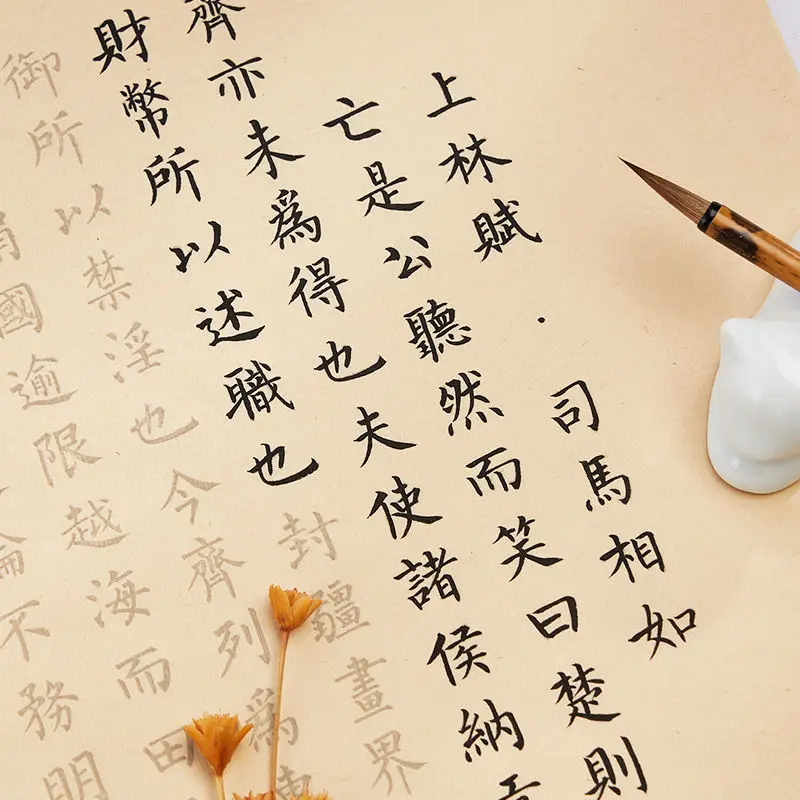 上林賦 · 司馬相如
亡是公聽然而笑曰楚則
齊亦未爲得也夫使諸侯納
財幣所以述職也封疆畫界
御所以禁淫也今齊列爲
國逾限越海而田
不務明